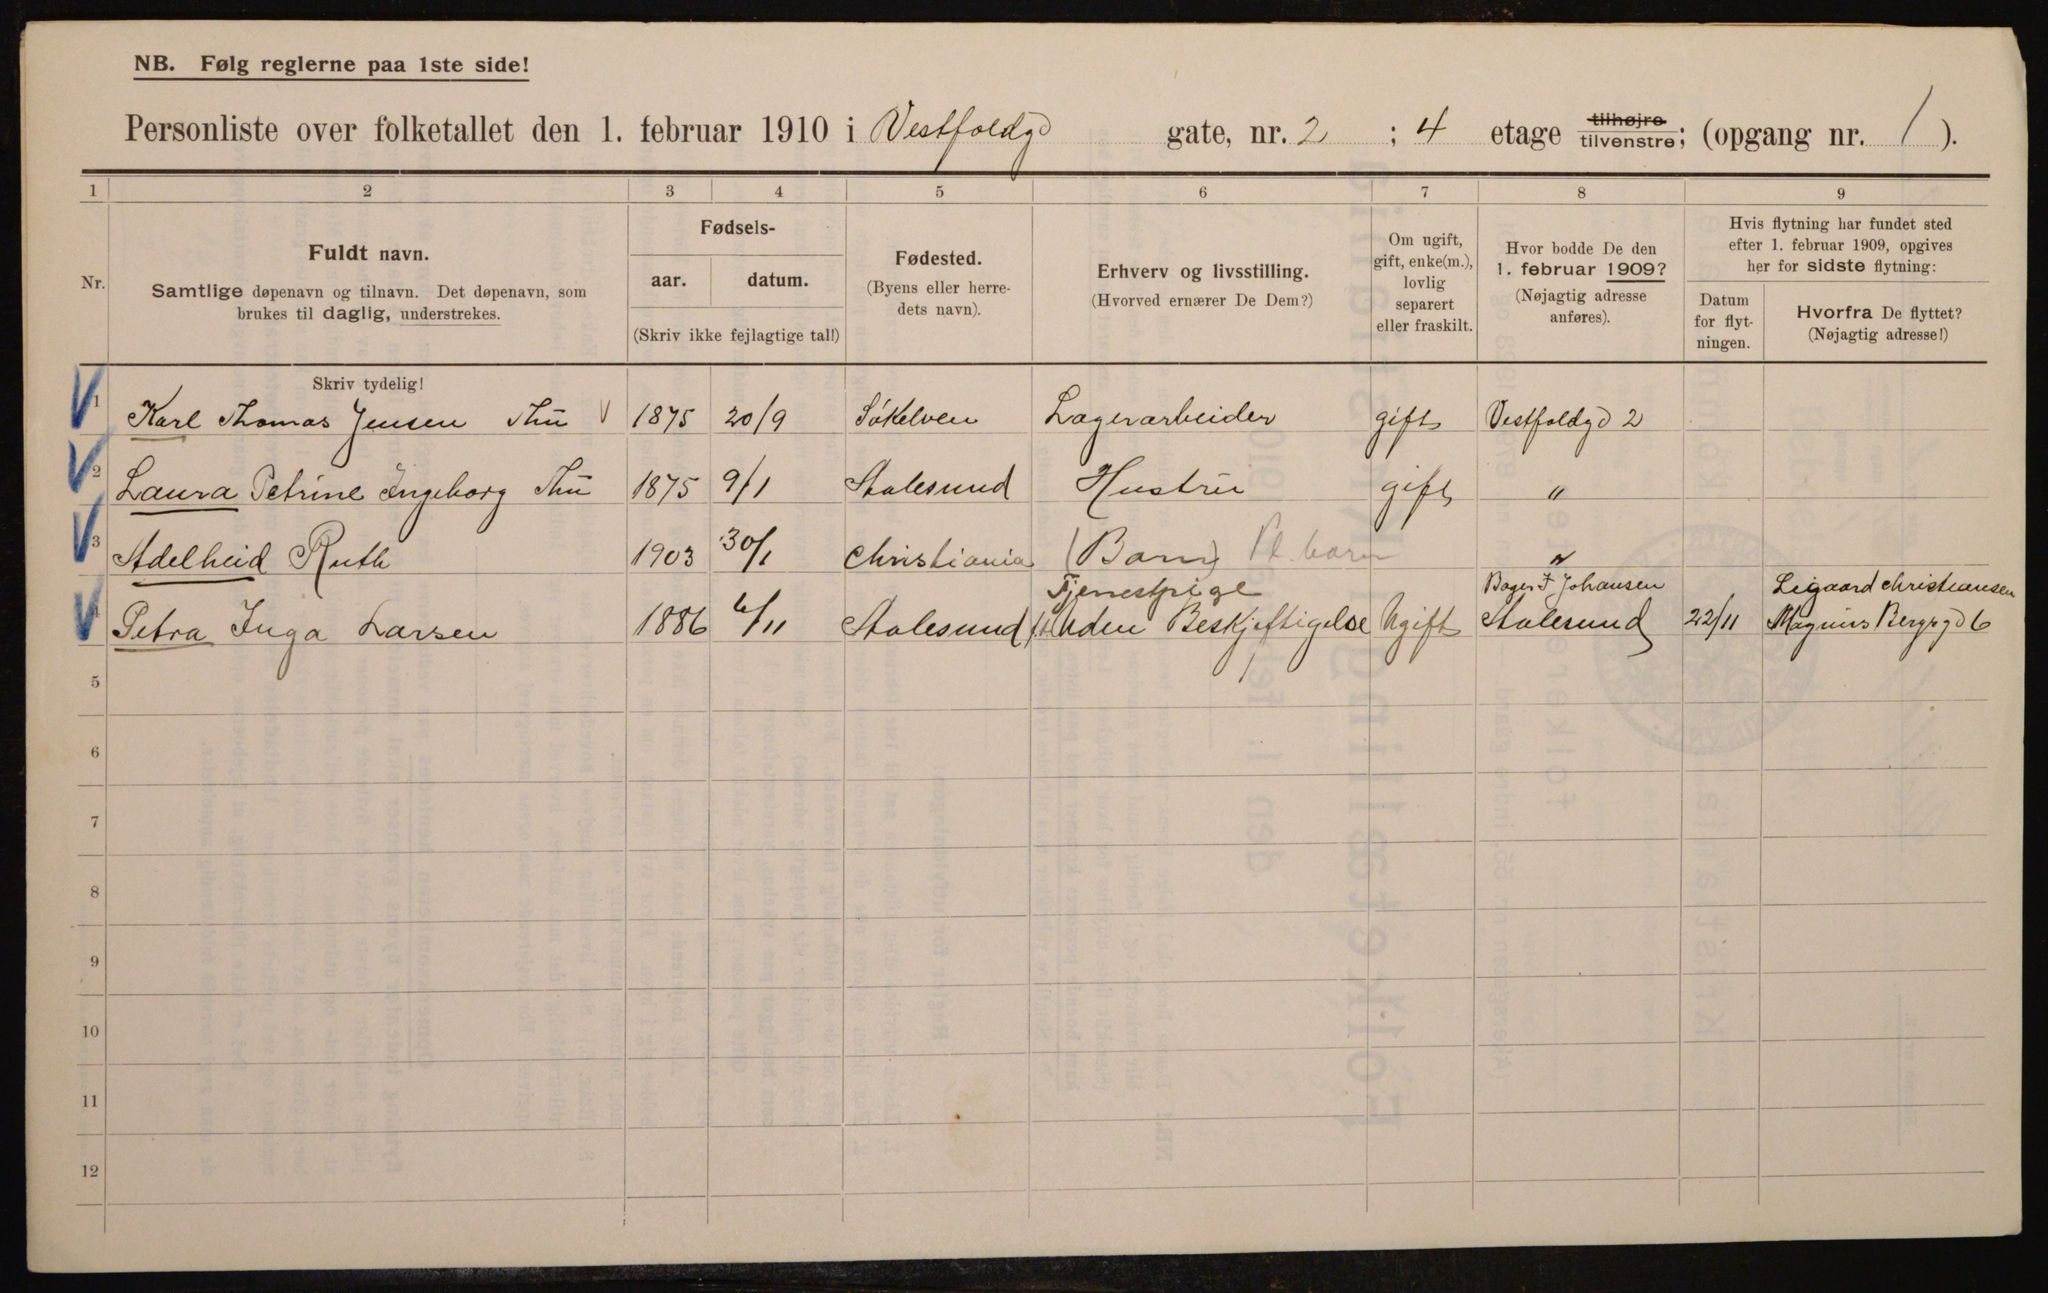 NB. Følg reglerne paa 1ste side!
Personliste over folketallet den 1. februar 1910 i Vestfoldgd gate, nr. 2 ; 4 etage tilhøjre tilvenstre; (opgang nr. 1 ).
1 2 3 4 5 6 7 8 9
Nr.
Fuldt navn.
Samtlige døpenavn og tilnavn. Det døpenavn, som
brukes til daglig, understrekes.
Fødsels-
aar. datum.
(Skriv ikke fejlagtige tal!)
Fødested.
(Byens eller herre-
dets navn).
Erhverv og livsstilling.
(Hvorved ernærer De Dem?)
Om ugift,
gift, enke(m.),
lovlig
separert
eller fraskilt.
Hvor bodde De den
1. februar 1909?
(Nøjagtig adresse
anføres).
Hvis flytning har fundet sted
efter 1. februar 1909, opgives
her for sidste flytning:
Datum
for flyt-
ningen.
Hvorfra De flyttet?
(Nøjagtig adresse!)
Skriv tydelig!
1 Karl Thomas Jensen Thu 1875 20/9 Søkelven Lagerarbeider gift Vestfoldgd 2
2 Laura Petrine Ingeborg Thu 1875 9/1 Aalesund Hustru gift "
3 Adelheid Ruth 1903 30/1 Christiania (Barn) Pl. barn "
Tjenestpige Bager F Johansen Ligaard Christiansen
4 Petra Inga Larsen 1886 6/11 Aalesund Uden Beskjeftigelse Ugift Aalesund 22/11 Magnus Bergsgd 6
5
6
7
8
9
10
11
12